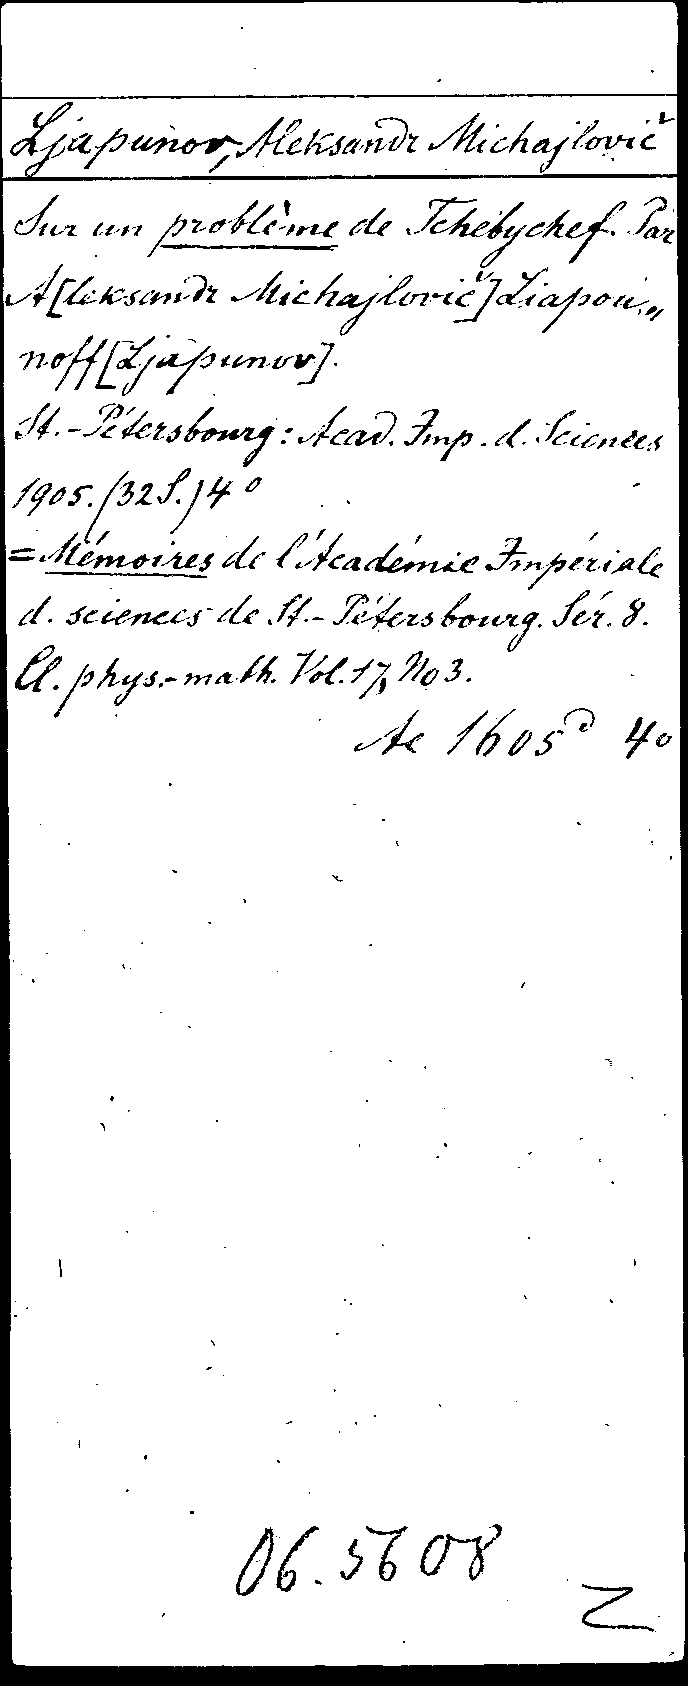 Ljapunov, Aleksandr Michajlovič
Sur un problème de Tchébychef. Par
A[leksandr Michajlovič] Liapou„
noff [Ljapunov].
St.-Pétersbourg: Acad. Imp. d. Sciences
1905. (32 S.) 4°
= Mémoires de l'Académie Impériale
d. sciences de St.-Pétersbourg. Sér. 8.
Cl. phys.-math. Vol. 17, No 3.
Ac 1605 4°
06.5608